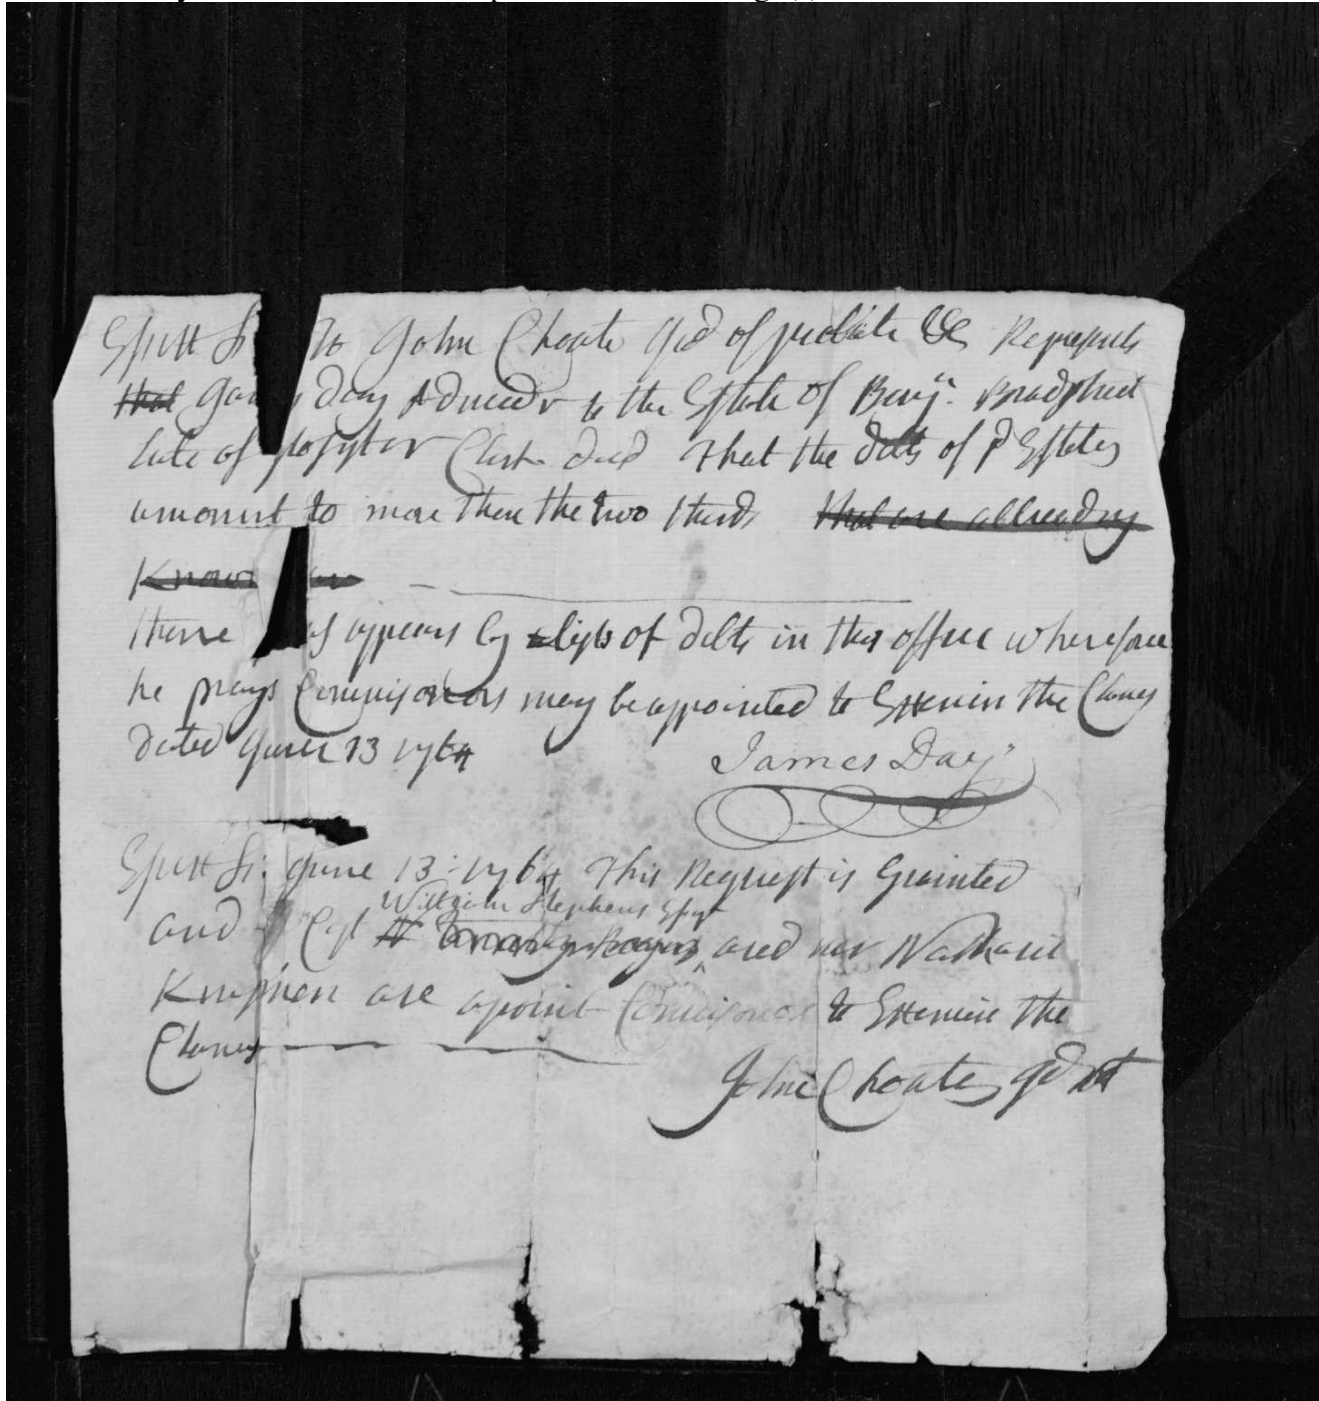 Essex Ss To John Choate Jud of probate &c Represents
that James Day Admr to the Estate of Benjn. Bradstreet
late of Glosster Clerk decd That the debts of sd Estates
amount to more then the two thirds that are allready
Known
there as appears by lists of debts in this office wherefore
he prays Comisoners may be appointed to Exemin the Clames
dated June 13 1764
James Day
Essex Ss: June 13: 1764 This Request is Grainted
William Stephens Esqr
and Cpt and mr Nathaniel
are apoint Comisoners to Exemine the
Clames
John Choate Jd